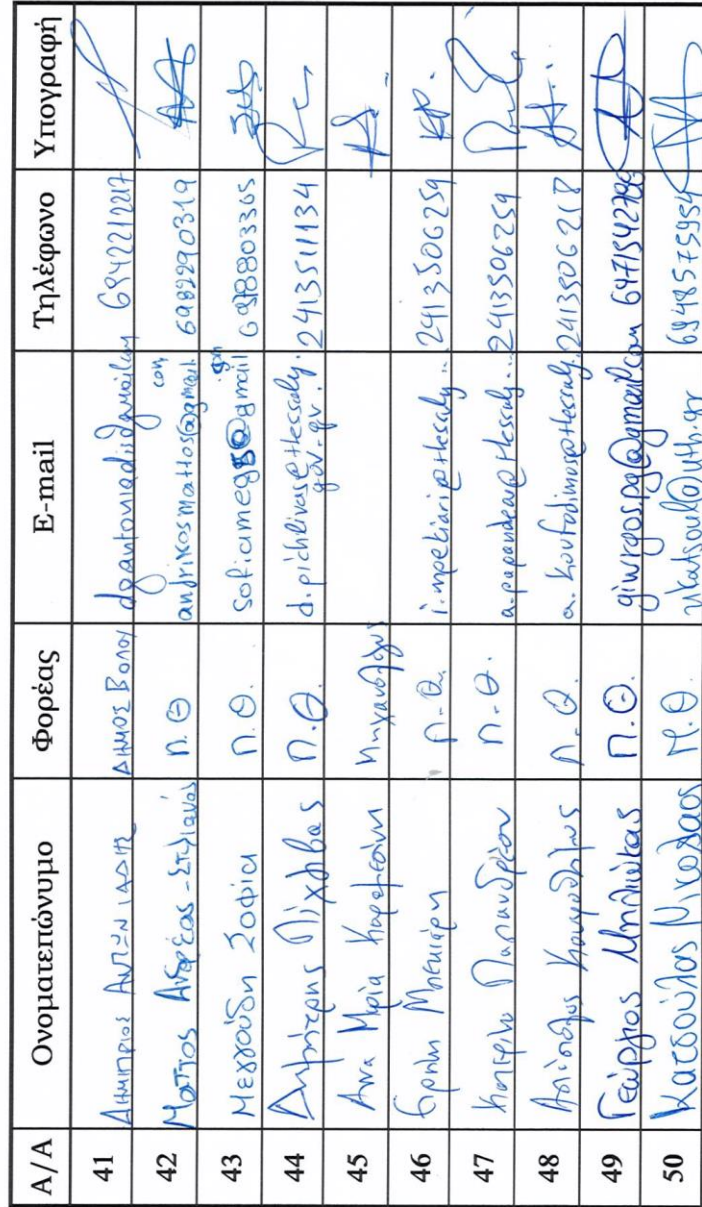 Α/Α Ονοματεπώνυμο Φορέας E-mail Τηλέφωνο Υπογραφή
41 ΔΗΜΗΤΡΙΟΣ ΑΝΤΩΝΙΑΔΗΣ ΔΗΜΟΣ ΒΟΛΟΥ 6942212217
42 Ματτος Ανδρέας-Στυλιανός Π.Θ andrikosmattos@gmail.com 6982290319
43 Μεγγούδη Σοφία Π.Θ. 6978803365
44 Δημήτρης Πίχλιβας Π.Θ. d.pichlivas@thessaly.gov.gr. 2413511134
45 Άννα Μαρία Μηχανολόγος
46 Ειρήνη Μπεκιάρη Π.Θ. i.mpekiari@thessaly... 2413506259
47 Κατερίνα Παπανδρέου Π.Θ. a.papandreou@thessaly... 2413506259
48 Απόστολος Κουφοδήμος Π.Θ. a.koufodimos@thessaly. 2413506218
49 Γεώργιος Μηλιώτας Π.Θ. giwrgos.pg@gmail.com
50 Κατσούλας Νικόλαος Π.Θ. nkatsoul@uth.gr